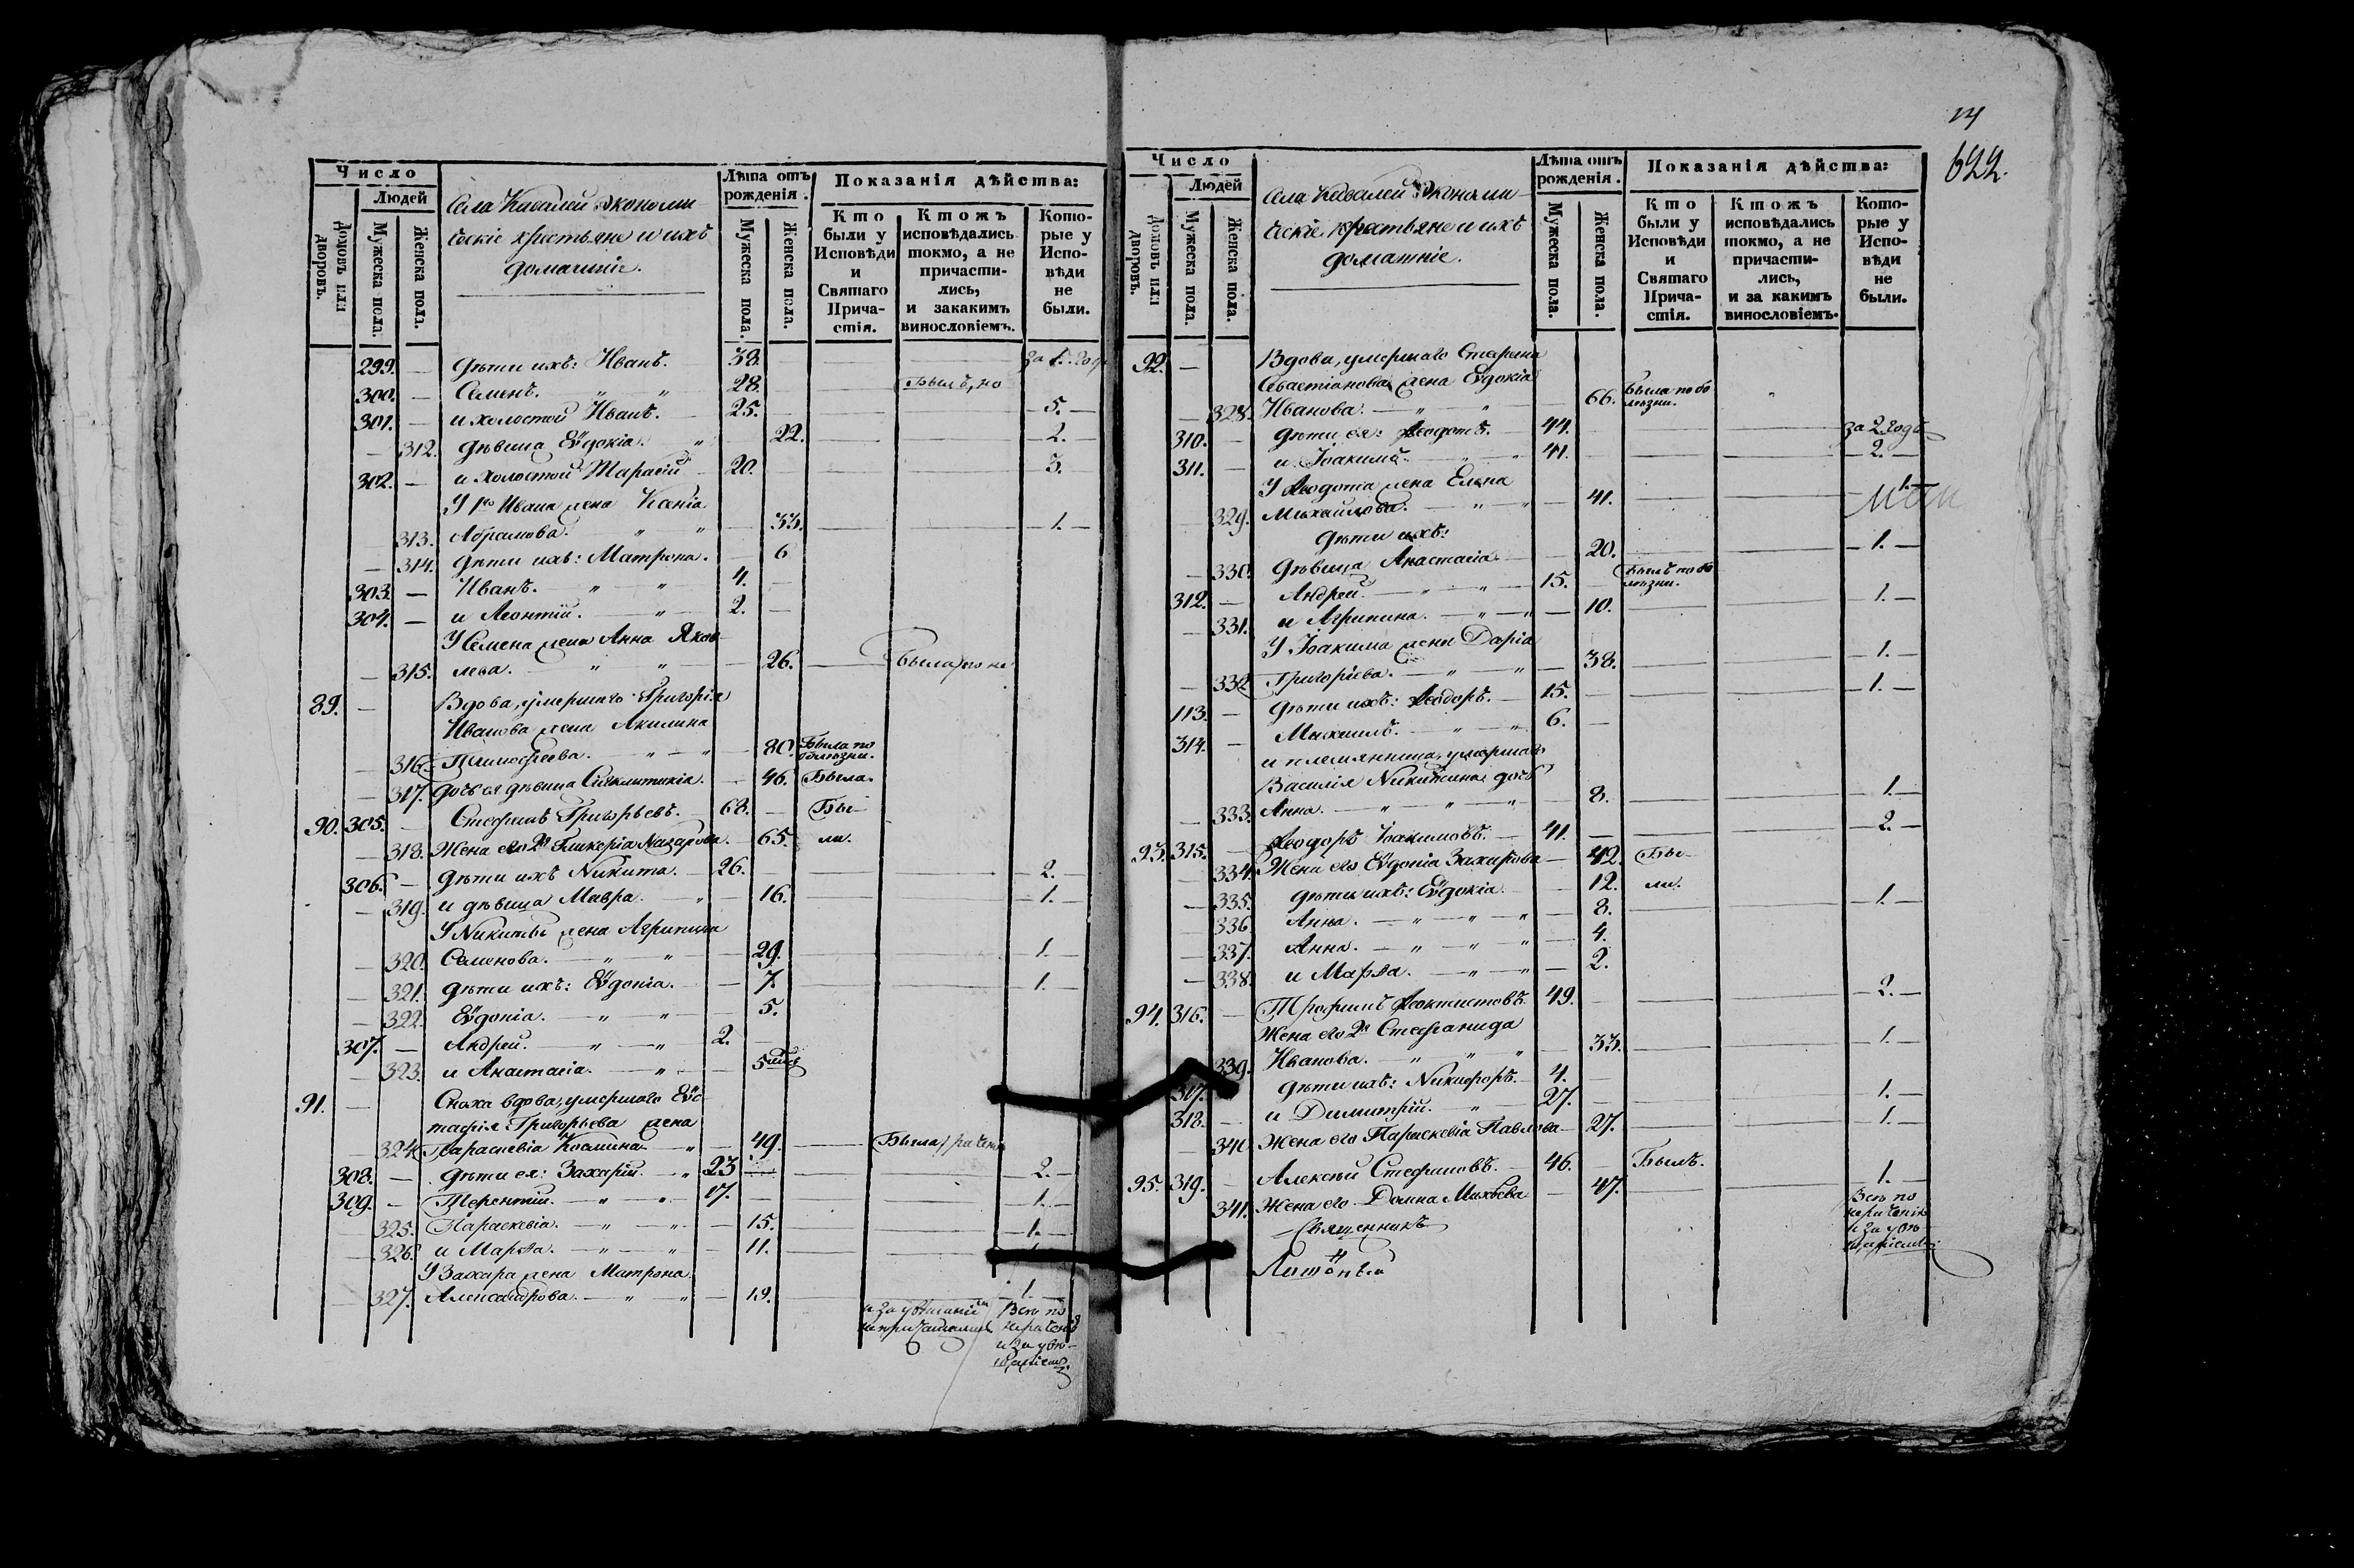 14
622.
Число
Людей
Домовъ или дворовъ.
Мужеска пола.
Женска пола.
Села Ковалей Экономи-
ческіе крестьяне и ихъ
домашніе.
Лѣта отъ рожденія.
Мужеска пола.
Женска пола.
Показанія дѣйства:
Кто были у Исповѣди и Святаго Прича-стія.
Ктожъ исповѣдались токмо, а не причасти-лись, и закакимъ винословіемъ.
Кото-рые у Испо-вѣди не были.
299. — дѣти ихъ: Иванъ. 38. за 1. годъ
300. — Семенъ. " " 28. Былъ, но
301. — и холостой Иванъ. 25. — 5. —
— 312. дѣвица Еѵдокія. " 22. — 2. —
302. — и холостой Тарасій 20. 3.
У 1го Ивана жена Ксенія
313. Абрамова. " " — 33. — 1. —
— 314. дѣти ихъ: Матрона. — 6
303. — Иванъ. " " 4. —
304. — и Леонтій. " 2. —
У Семена жена Анна Яков-
— 315. лева. " " — 26. — Была, но не
89. — Вдова, умершаго Григорія
Иванова жена Акилина
— 316. Тимофеева. " " — 80. Была по болѣзни.
— 317. дочь ея дѣвица Синклитикія. — 46. Была.
90. 305. — Стефанъ Григорьевъ. 68. — Бы-
— 318. Жена его 2я Гликерія Назарова. — 65. ли.
306. — дѣти ихъ Никита. — 26. — 2. —
— 319. и дѣвица Мавра. " — 16. — 1. —
У Никиты жена Агрипина
— 320. Семенова. — " " — 29. — 1. —
— 321. дѣти ихъ: Еѵдокія. — 7. — 1. —
— 322. Еѵдокія. — " " — 5.
307. — Андрей. — " — " 2. —
— 323. и Анастасія. — " — 5
91. — Сноха вдова, умершаго Еѵс-
тафія Григорьева жена
324. Параскевія Космина — " — 49. — Была,
308. — дѣти ея: Захарій. — " 23 — 2. —
309. — Терентій. — " — " 17. — 1. —
325. Параскевія. — " — " — 15. — 1. —
— 326. и Марѳа. — " — " — 11. — 1. —
У Захара жена Матрона
— 327. Александрова. — " — " — 19. — 1. —
и за увѣщаніемъ не причащались
Всѣ по нераченію и за увѣ-щаніемъ.
Число
Людей
Домовъ или дворовъ.
Мужеска пола.
Женска пола.
Села Ковалей Экономи-
ческіе крестьяне и ихъ
домашніе.
Лѣта отъ рожденія.
Мужеска пола.
Женска пола.
Показанія дѣйства:
Кто были у Исповѣди и Святаго Прича-стія.
Ктожъ исповѣдались токмо, а не причасти-лись, и за какимъ винословіемъ.
Кото-рые у Испо-вѣди не были.
92. — Вдова, умершаго Стефана
Севастіанова жена Еѵдокія
— 328. Иванова. — " " — 66. Была по бо-лѣзни.
310. — дѣти ея: Ѳеодотъ. — 44. — за 2. года
311. — и Іоакимъ. " " 41. — 2. —
У Ѳеодота жена Елена
329. Михаилова. — " — " — 41. — 1. —
дѣти ихъ:
— 330. дѣвица Анастасія. — 20. — 1. —
312. — Андрей. — " — " — 15. — Былъ по бо-лѣзни.
— 331. и Агрипина. — " — " — 10. — 1. —
У Іоакима жена Дарія
— 332. Григоріева. — " — " — 38. — 1. —
113. — дѣти ихъ: Ѳеодоръ. — 15. — 1. —
314. — Михаилъ. — " — " 6. —
и племянница, умершаго
Василія Никитина дочь
— 333. Анна. — " — " — " — 8. — 1. —
93. 315. — Ѳеодоръ Іоакимовъ. — 41. — 2. —
— 334. Жена его Еѵдокія Захарова — 42. Бы-
— 335. дѣти ихъ: Еѵдокія. — 12. ли.
— 336. Анна. — " — " — " — 8. — 1. —
— 337. Анна. — " — " " — 4.
— 338. и Марѳа. — " — " — 2.
94. 316. — Трофимъ Ѳеоктистовъ. 49. — 2. —
Жена его 2я Стефанида
339. Иванова. — " " " — 33. — 1. —
317. — дѣти ихъ: Никифоръ. — 4. —
318. — и Димитрій. — " — 27. — 1. —
— 340. Жена его Параскевія Павлова — 27. — 1. —
95. 319. — Алексѣй Стефановъ. — 46. — Былъ.
341. Жена его Домна Михѣева — 47. — 1. —
Священникъ
Всѣ по нераченію и за увѣ-щаніемъ.